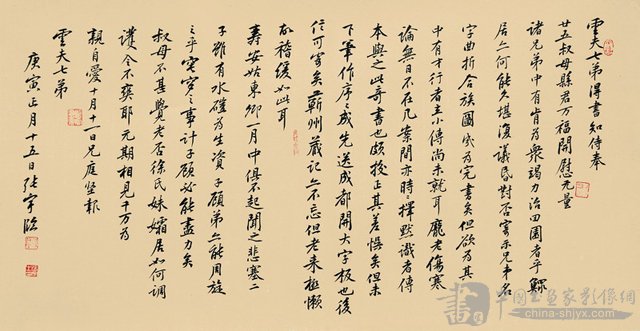 雲夫七弟得書知侍奉
廿五叔母縣君萬福開慰無量
諸兄弟中有肯為衆竭力治田園者乎鰥
居亦何能久堪復議昏對否寄示兄弟名
字曲折合族圖成為完書矣但欲為其
中有才行者立小傳尚未就耳龐老傷寒
論無日不在几案間亦時時擇默識者傳
本與之此奇書也頗校正其差悞矣但未
下筆作序序成先送成都開大字板也後
信可寄矣蘄州藏記亦不忘但老來極懶
故稽緩如此耳
壽安姑東卿一月中俱不起聞之悲塞二
子雖有水磑為生資子顧弟亦能周旋
之乎宅穸之事計子顧必能盡力矣
叔母不甚覺老否徐氏妹孀居如何調
護令不爽耶元期相見千萬為
親自愛十月十一日兄庭堅報
雲夫七弟
庚寅正月十五日張宇臨
中国书画家影像网
www.china-shjyx.com